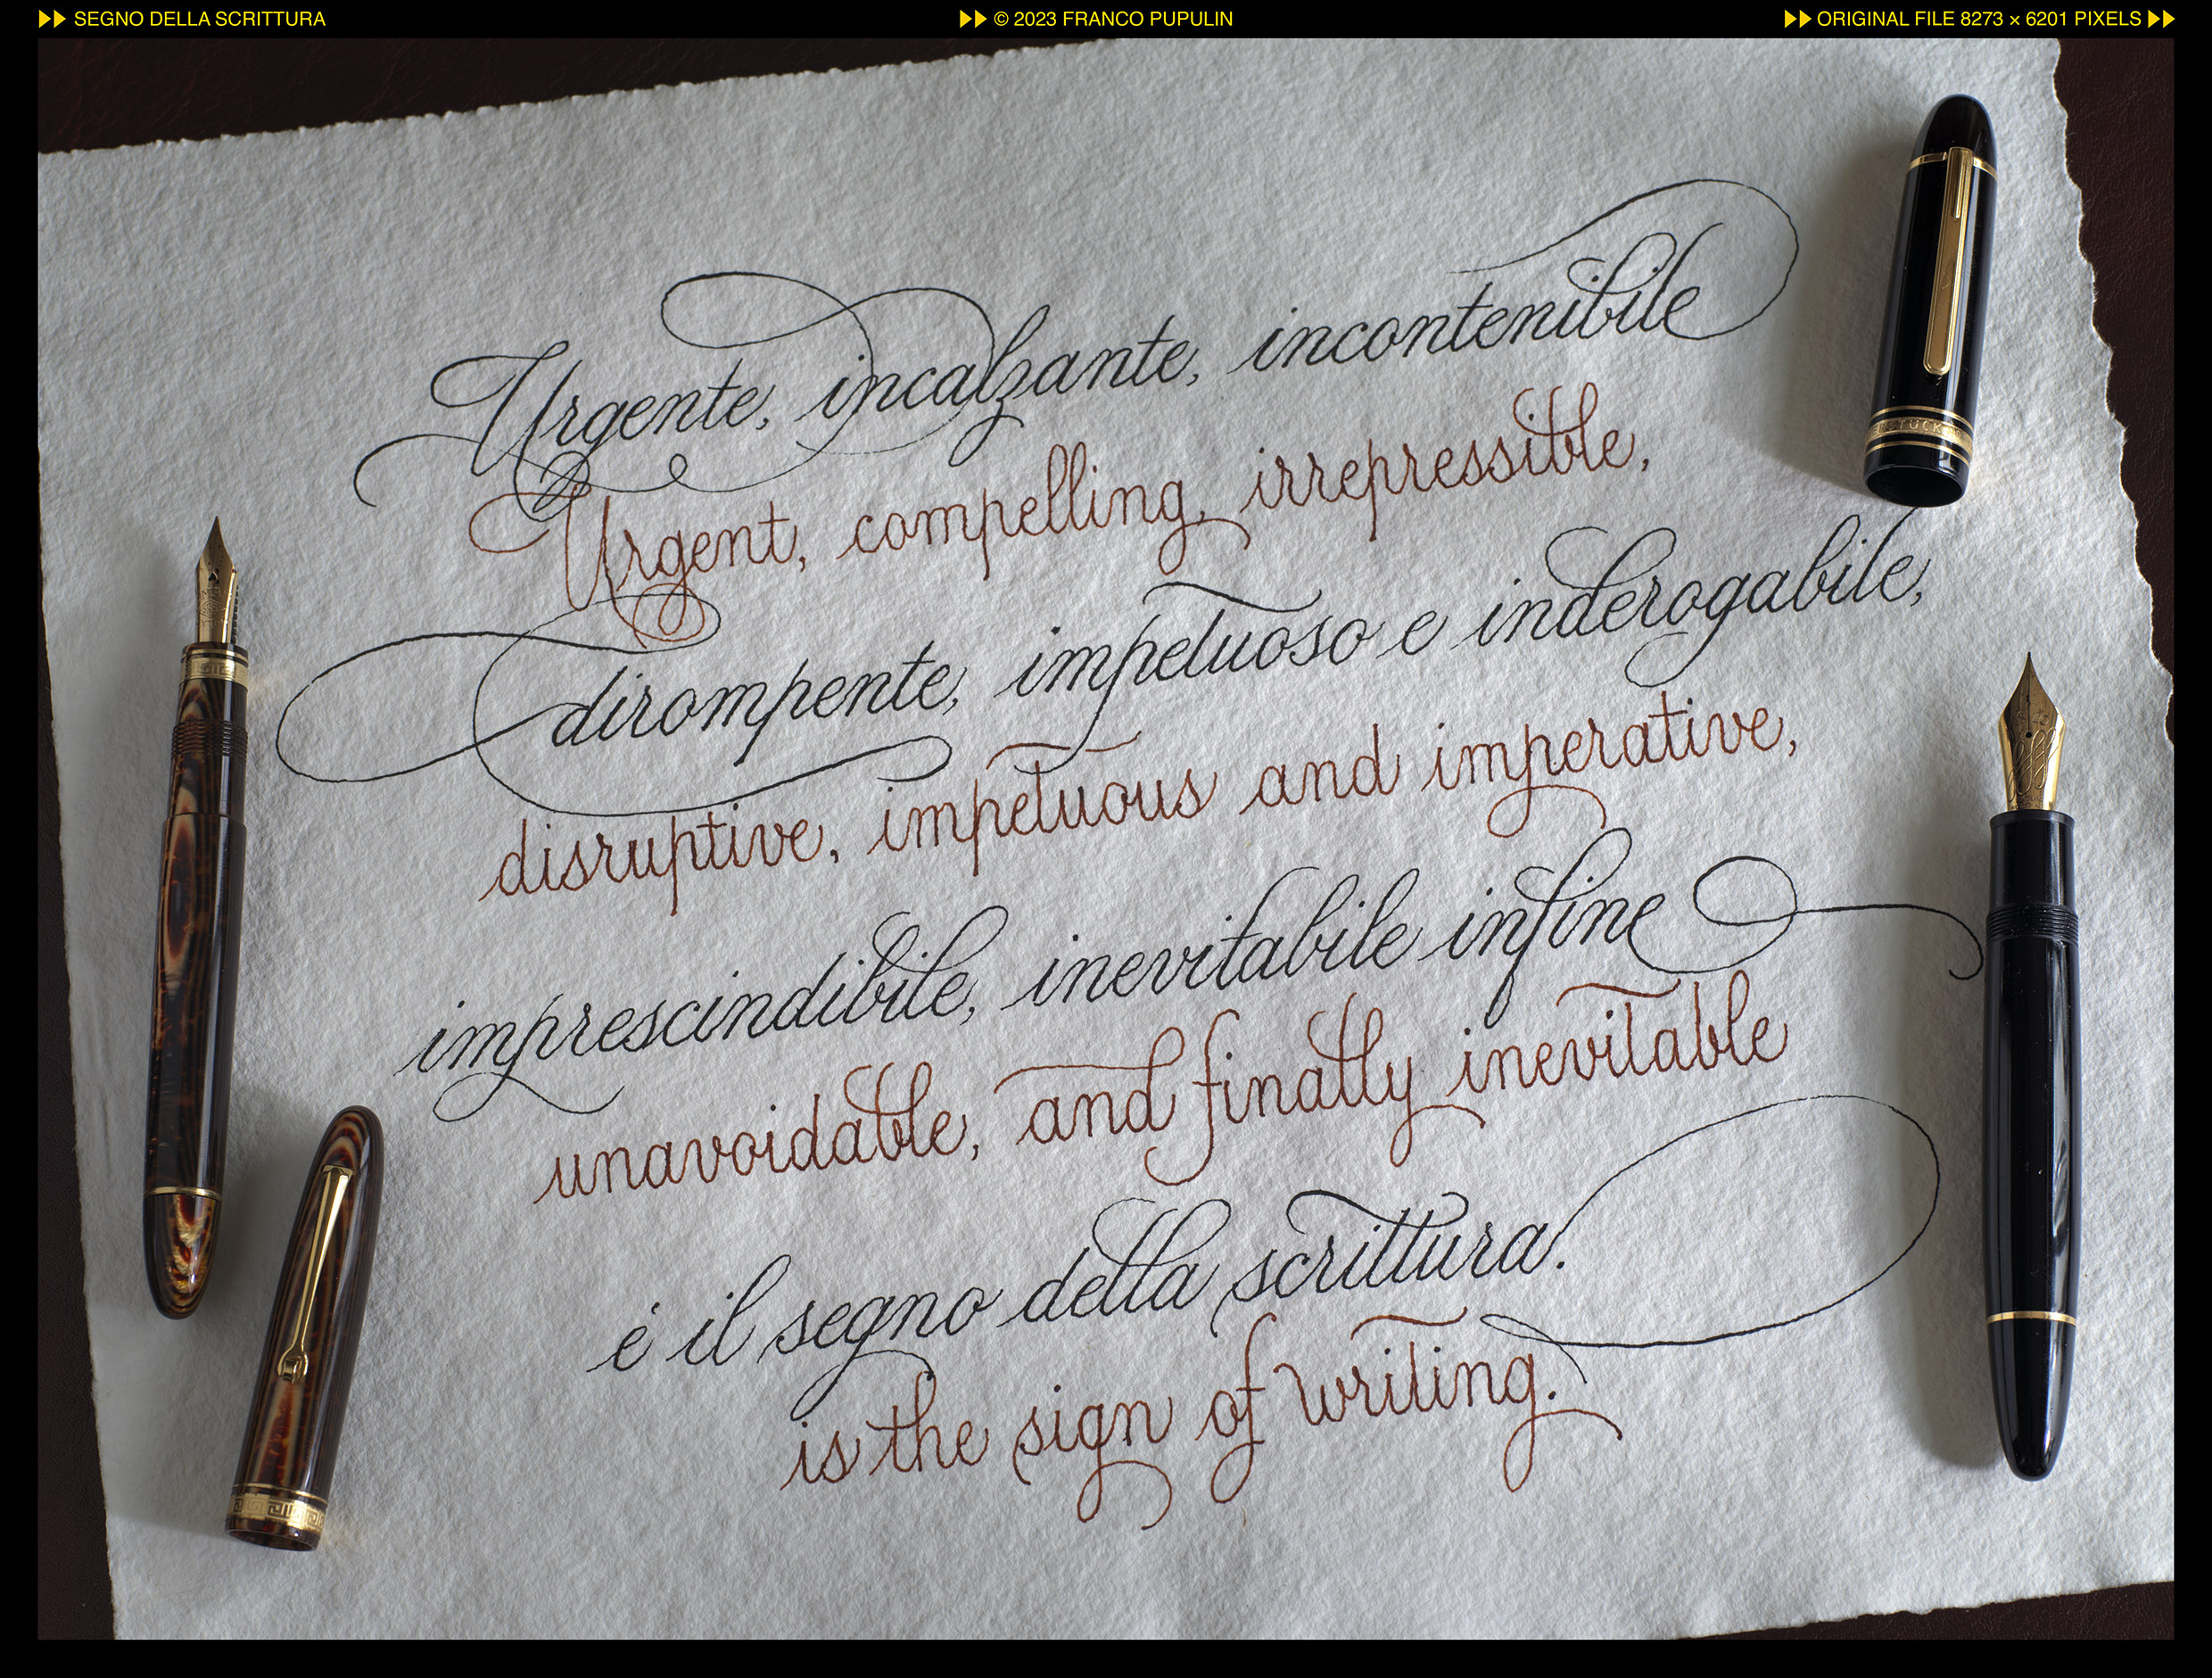 SEGNO DELLA SCRITTURA
© 2023 FRANCO PUPULIN
ORIGINAL FILE 8273 × 6201 PIXELS
Urgente, incalzante, incontenibile
Urgent, compelling, irrepressible,
dirompente, impetuoso e inderogabile,
disruptive, impetuous and imperative,
imprescindibile, inevitabile infine
unavoidable, and finally inevitable
è il segno della scrittura.
is the sign of writing.